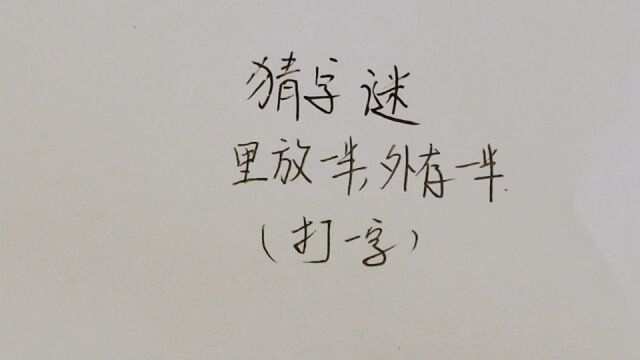 猜字谜
里放一半,外存一半.
(打一字)